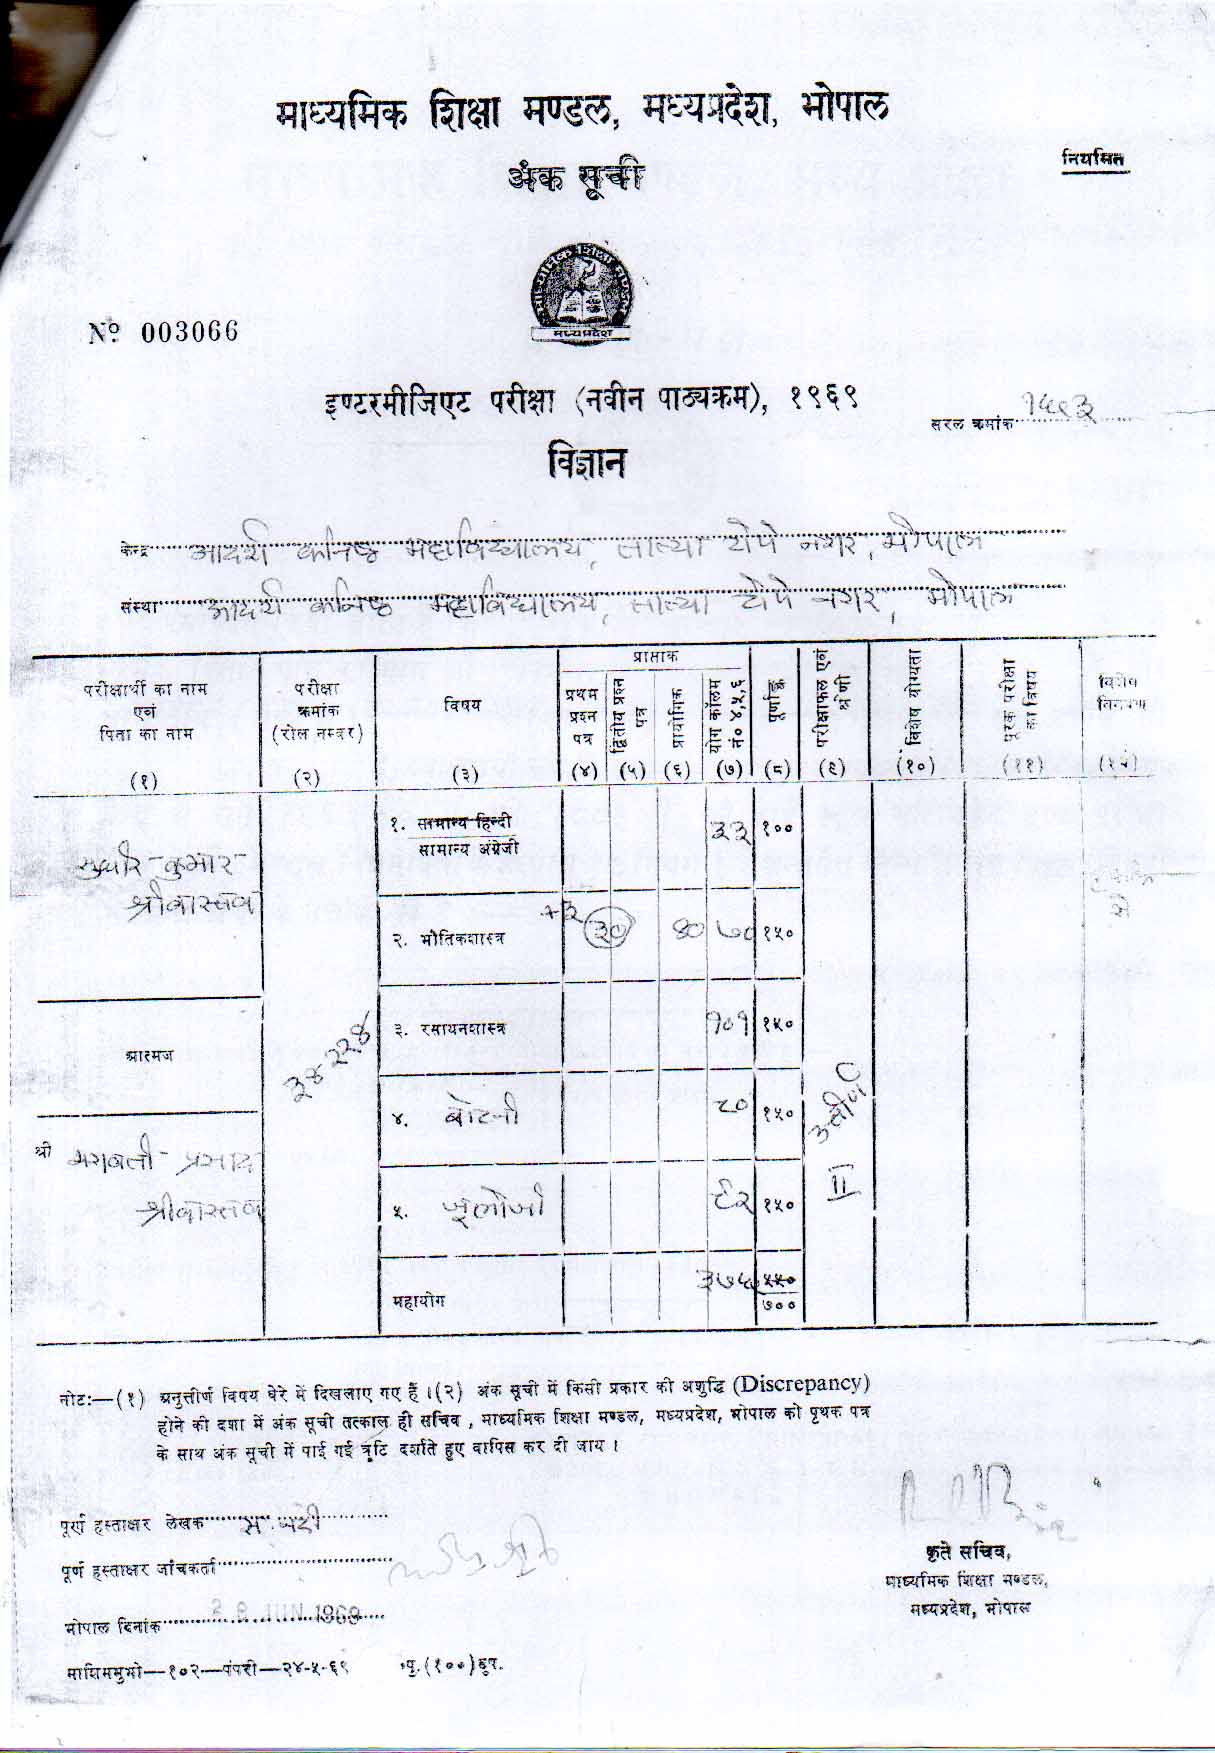 माध्यमिक शिक्षा मण्डल, मध्यप्रदेश, भोपाल
अंक सूची
नियमित
माध्यमिक शिक्षा मण्डल
मध्यप्रदेश
Nº 003066
इण्टरमीजिएट परीक्षा (नवीन पाठ्यक्रम), १९६९
सरल क्रमांक
विज्ञान
केन्द्र आदर्श कनिष्ठ महाविद्यालय, तात्या टोपे नगर, भोपाल
संस्था आदर्श कनिष्ठ महाविद्यालय, तात्या टोपे नगर, भोपाल
परीक्षार्थी का नाम एवं पिता का नाम (१)
परीक्षा क्रमांक (रोल नम्बर) (२)
विषय (३)
प्राप्तांक
प्रथम प्रश्न पत्र (४)
द्वितीय प्रश्न पत्र (५)
प्रायोगिक (६)
योग कॉलम नं० ४,५,६ (७)
पूर्णाङ्क (८)
परीक्षाफल एवं श्रेणी (९)
विशेष योग्यता (१०)
पूरक परीक्षा का विषय (११)
विशेष विवरण (१२)
सुधीर कुमार
श्रीवास्तव
आत्मज
श्री भगवती प्रसाद
श्रीवास्तव
३४२२४
१. सामान्य हिन्दी
सामान्य अंग्रेजी ३३ १००
२. भौतिकशास्त्र +३ ३० ४० ७० १५०
३. रसायनशास्त्र १०१ १५०
४. बोटनी ८० १५०
५. जूलोजी ९२ १५०
महायोग ३७५ ५५०
७००
उत्तीर्ण
II
नोट:—(१) अनुत्तीर्ण विषय घेरे में दिखलाए गए हैं ।(२) अंक सूची में किसी प्रकार की अशुद्धि (Discrepancy)
होने की दशा में अंक सूची तत्काल ही सचिव, माध्यमिक शिक्षा मण्डल, मध्यप्रदेश, भोपाल को पृथक पत्र
के साथ अंक सूची में पाई गई त्रुटि दर्शाते हुए वापिस कर दी जाय ।
पूर्ण हस्ताक्षर लेखक
पूर्ण हस्ताक्षर जाँचकर्ता
भोपाल दिनांक 28 JUN 1969
माशिममुभो—१०२—पंपरी—२४-५-६९ पु. (१००) हुष.
कृते सचिव,
माध्यमिक शिक्षा मण्डल,
मध्यप्रदेश, भोपाल